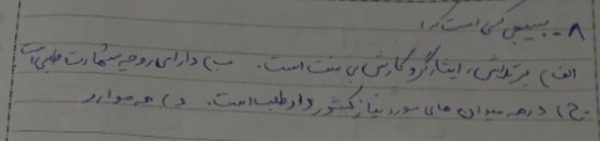 ۸- بسیجی کسی است که:
الف) پرتلاش، ایثارگر و کارش بی منت است. ب) دارای روحیه شهادت طلبی است
ج) در همه میدان های مورد نیاز کشور داوطلب است. د) همه موارد